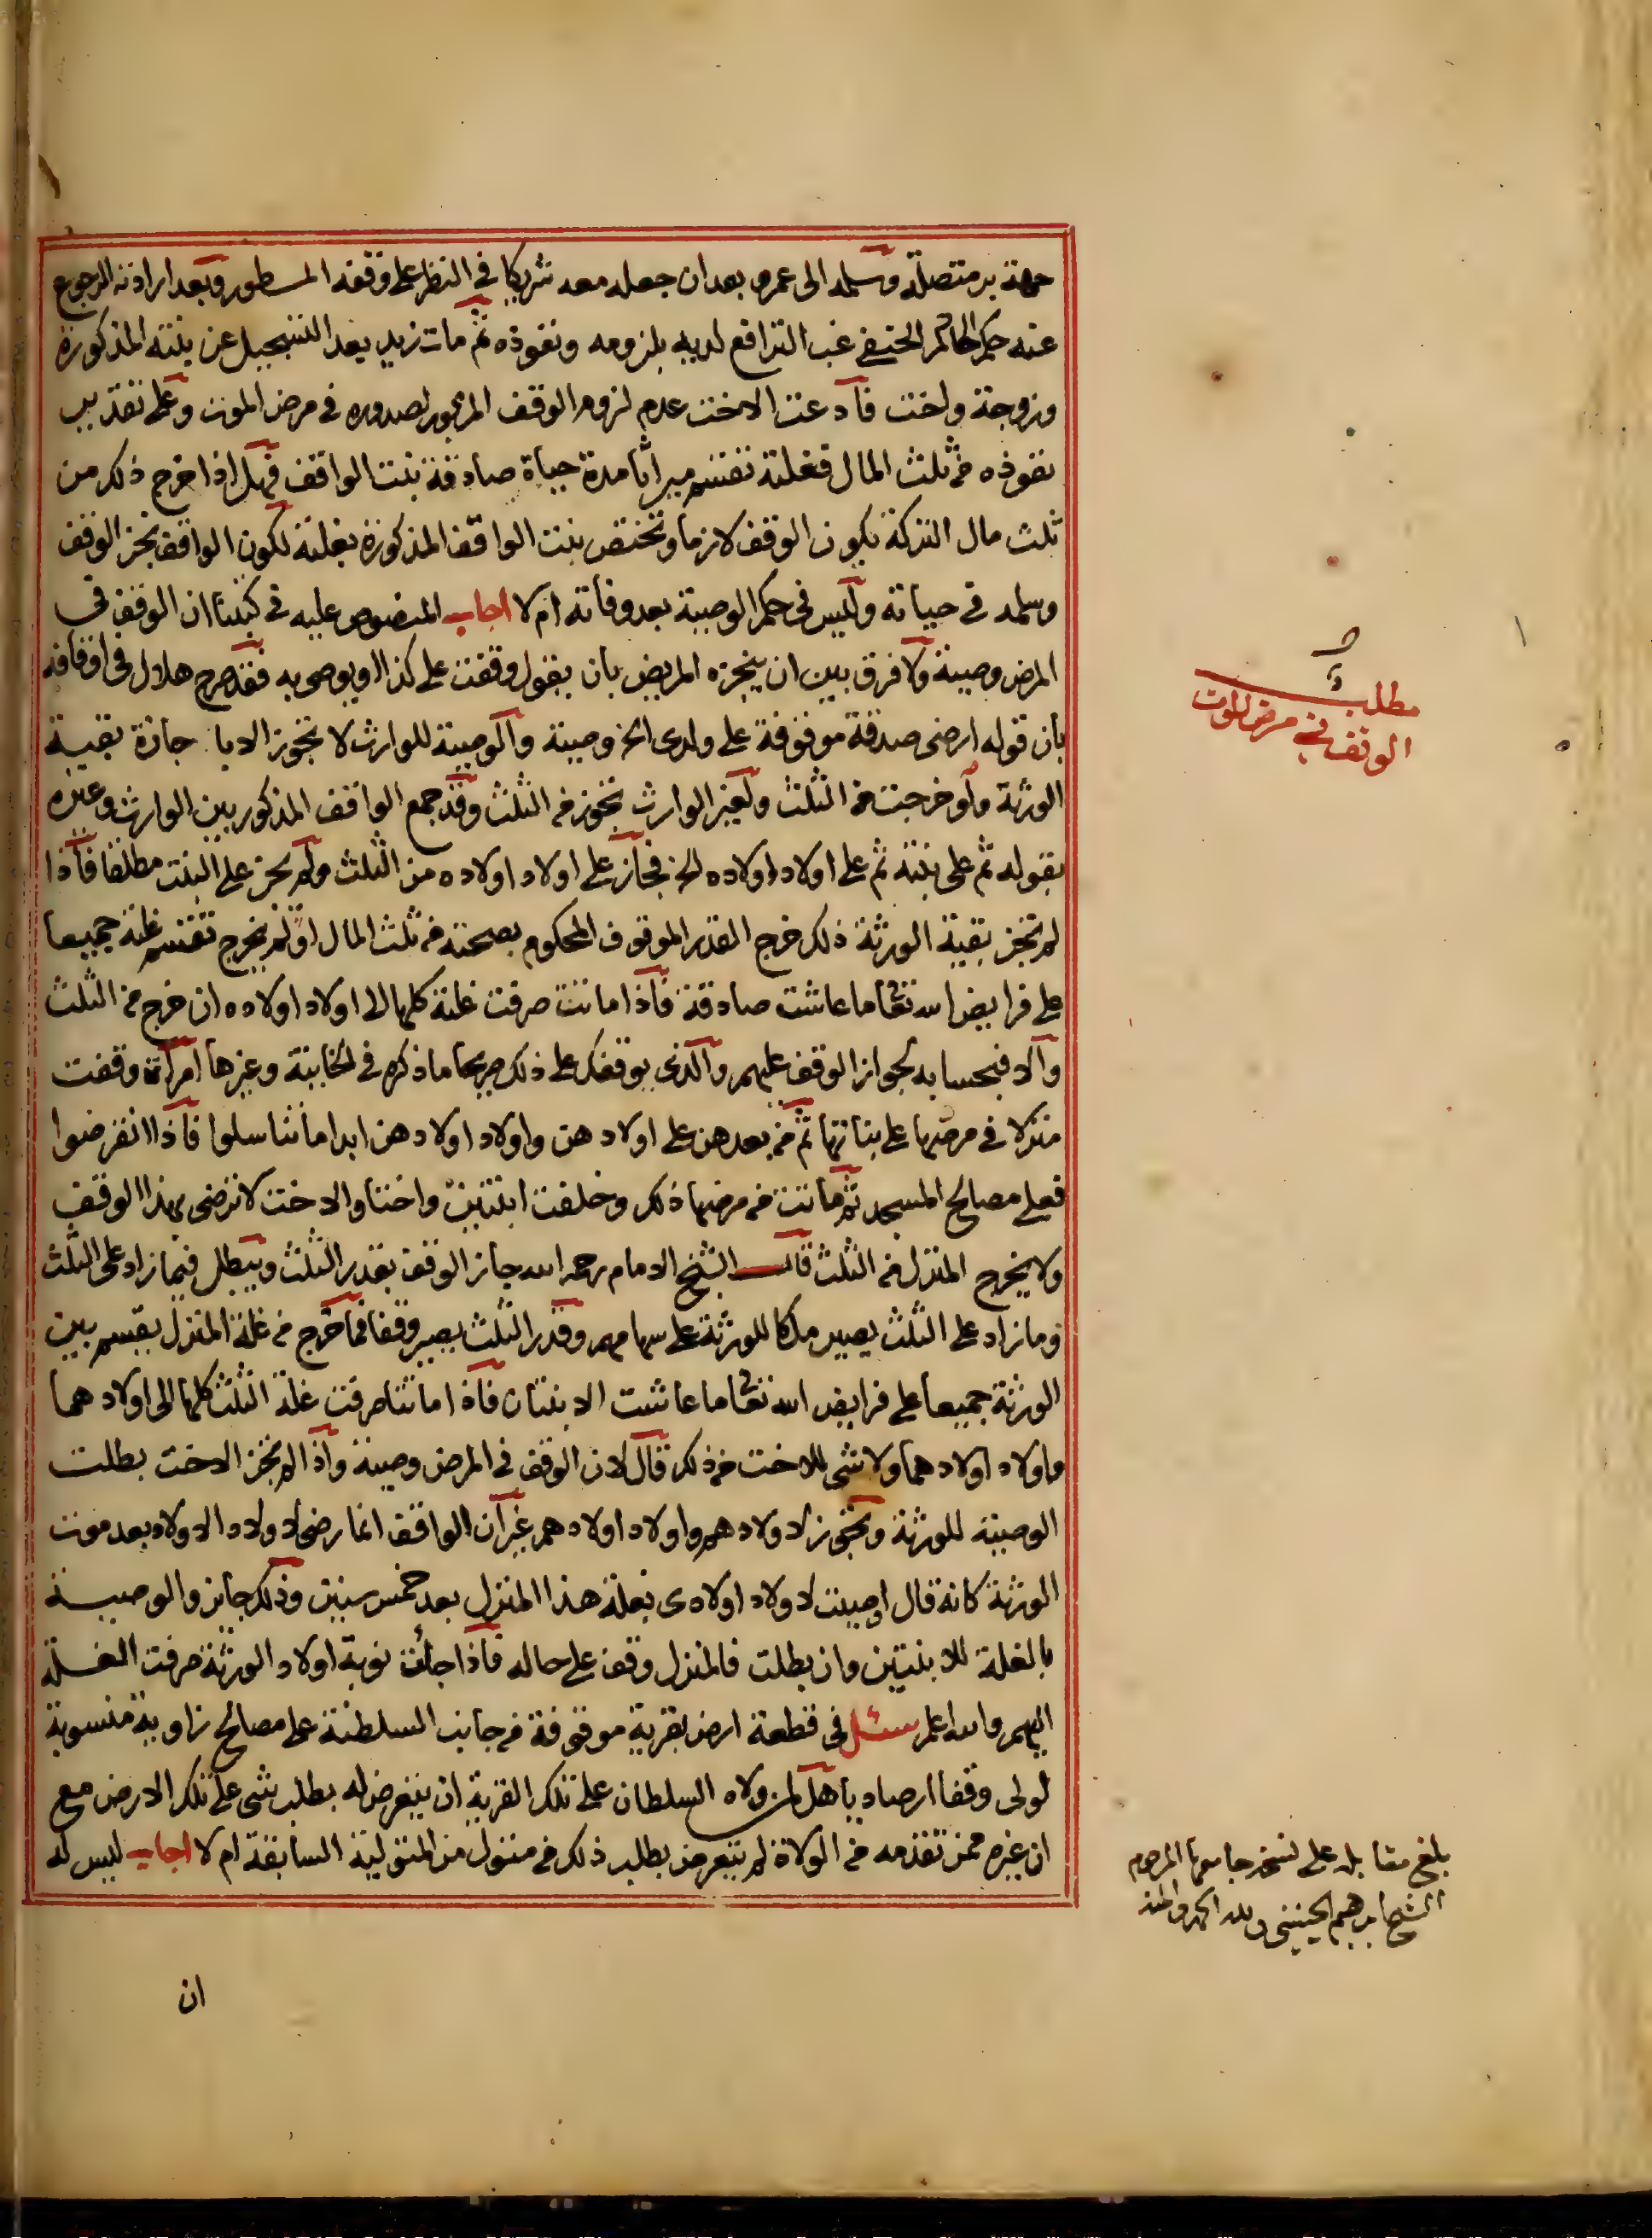 جهة بر متصلة وسلمه الى عمرو بعد ان جعله معه شريكا في النظر على وقفه المسطور وبعد ارادته الرجوع
عنه حكم الحاكم الحنفي غب الترافع لديه بلزومه ونفوذه ثم مات زيد بعد التسجيل عن بنته المذكورة
وزوجة واخت فادعت الاخت عدم لزوم الوقف المزبور لصدوره في مرض الموت وعلى تقدير
نفوذه من ثلث المال فغلته تقسم ميراثا مدة حياة صادقة بنت الواقف فهل اذا خرج ذلك من
ثلث مال التركة يكون الوقف لازما وتختص بنت الواقف المذكورة بغلته لكون الواقف نجز الوقف
وسلمه في حياته وليس في حكم الوصية بعد وفاته ام لا اجاب المنصوص عليه في كتبنا ان الوقف في
المرض وصية ولا فرق بين ان ينجزه المريض بان يقول وقفت على كذا او يوصى به فقد صرح هلال في اوقافه
بان قوله ارضى صدقة موقوفة على ولدى الخ وصية والوصية للوارث لا تجوز الا با جازة بقية
الورثة ولو خرجت من الثلث ولغير الوارث تجوز من الثلث وقد جمع الواقف المذكور بين الوارث وغيره
بقوله ثم على بنته ثم على اولاد اولاده الخ فجاز على اولاد اولاده من الثلث ولم يجز على البنت مطلقا فاذا
لم تجز بقية الورثة ذلك خرج القدر الموقوف المحكوم بصحته من ثلث المال او لم يخرج تقسم غلته جميعا
على فرايض الله تعا ما عاشت صادقة فاذا ماتت صرفت غلته كلها الى اولاد اولاده ان خرج من الثلث
والا فبحسابه لجواز الوقف عليهم والذى يوقفك على ذلك صريحا ما ذكره في الخانية وغيرها امراة وقفت
منزلا في مرضها على بناتها ثم من بعدهن على اولادهن واولاد اولادهن ابدا ما تناسلوا فاذا انقرضوا
فعلى مصالح المسجد ثم ماتت من مرضها ذلك وخلفت ابنتين واختا والاخت لا ترضى بهذا الوقف
ولا يخرج المنزل من الثلث قال الشيخ الامام رحمه الله جاز الوقف بقدر الثلث ويبطل فيما زاد على الثلث
وما زاد على الثلث يصير ملكا للورثة على سهامهم وقدر الثلث يصير وقفا فما خرج من غلة المنزل يقسم بين
الورثة جميعا على فرايض الله تعا ما عاشت الابنتان فاذا ماتتا صرفت غلة الثلث كلها الى اولادهما
واولاد اولادهما ولا شى للاخت من ذلك قال لان الوقف في المرض وصية واذا لم تجز الاخت بطلت
الوصية للورثة وتجوز لاولادهم واولاد اولادهم غير ان الواقف انما رضى لاولاد الاولاد بعد موت
الورثة كانه قال اوصيت لاولاد اولادى بغلة هذا المنزل بعد خمس سنين وذلك جايز والوصية
بالغلة للابنتين وان بطلت فالمنزل وقف على حاله فاذا جائت نوبة اولاد الورثة صرفت الغلة
اليهم والله اعلم سئل في قطعة ارض بقرية موقوفة من جانب السلطنة على مصالح زاوية منسوبة
لولى وقفا ارصاديا هل لمن ولاه السلطان على تلك القرية ان يتعرض له بطلب شى على تلك الارض مع
ان غيره ممن تقدمه من الولاة لم يتعرض بطلب ذلك من متول من المتولية السابقة ام لا اجاب ليس له
ان
مطلب
الوقف في مرض الموت
بلغ مقابله على نسخة جامعها المرحوم
الشيخ ابراهيم الجينينى ولله الحمد والمنه